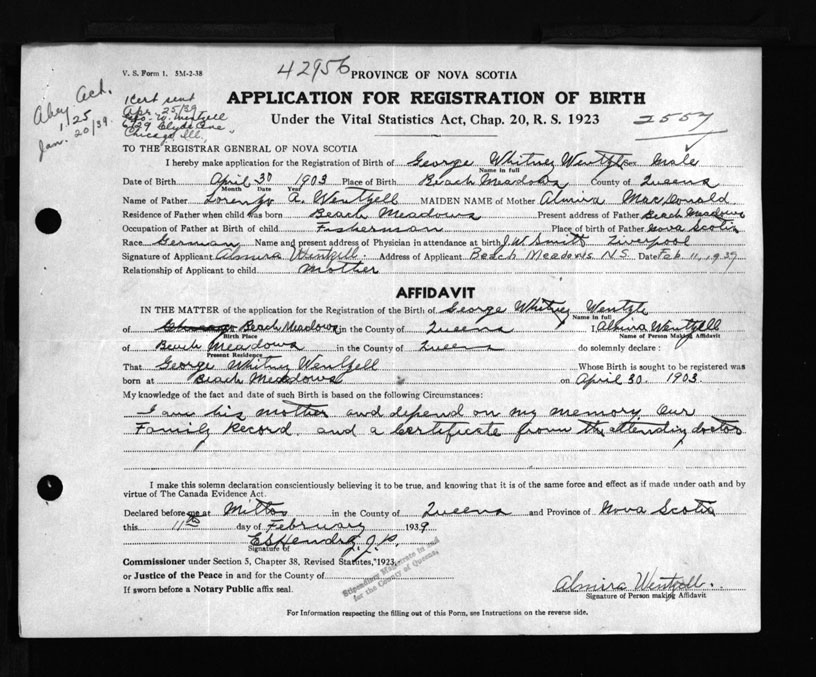 V. S. Form 1. 5M-2-38
42956
PROVINCE OF NOVA SCOTIA
1 Cert sent
Apr. 25/39
Chicago Ill.
1/25
Jan. 20/39.
APPLICATION FOR REGISTRATION OF BIRTH
Under the Vital Statistics Act, Chap. 20, R. S. 1923
2557
TO THE REGISTRAR GENERAL OF NOVA SCOTIA
I hereby make application for the Registration of Birth of George Whitney Wentzle Sex Male
Name in full
Date of Birth April 30 1903 Place of Birth Beach Meadows County of Queens
Month Date Year
Name of Father Lorenzo A. Wentzell MAIDEN NAME of Mother Almira MacDonald
Residence of Father when child was born Beach Meadows Present address of Father Beach Meadows
Occupation of Father at Birth of child Fisherman Place of birth of Father Nova Scotia
Race German Name and present address of Physician in attendance at birth J. W. Smith Liverpool
Signature of Applicant Almira Wentzell Address of Applicant Beach Meadows N.S. Date Feb 11, 1939
Relationship of Applicant to child Mother
AFFIDAVIT
IN THE MATTER of the application for the Registration of the Birth of George Whitney Wentzle
Name in full
of Chicago Beach Meadows in the County of Queens I, Almira Wentzell
Birth Place Name of Person Making Affidavit
of Beach Meadows in the County of Queens do solemnly declare :
Present Residence
That George Whitney Wentzell Whose Birth is sought to be registered was
born at Beach Meadows on April 30. 1903.
My knowledge of the fact and date of such Birth is based on the following Circumstances:
I am his mother and depend on my memory. Our
Family Record. and a Certificate from the attending doctor
I make this solemn declaration conscientiously believing it to be true, and knowing that it is of the same force and effect as if made under oath and by
virtue of The Canada Evidence Act.
Declared before me at Milton in the County of Queens and Province of Nova Scotia
this 11th day of February 1939
J. P.
Signature of
Commissioner under Section 5, Chapter 38, Revised Statutes, 1923,
or Justice of the Peace in and for the County of
Stipendiary Magistrate in and
for the County of Queens.
If sworn before a Notary Public affix seal.
Almira Wentzell.
Signature of Person making Affidavit
For Information respecting the filling out of this Form, see Instructions on the reverse side.